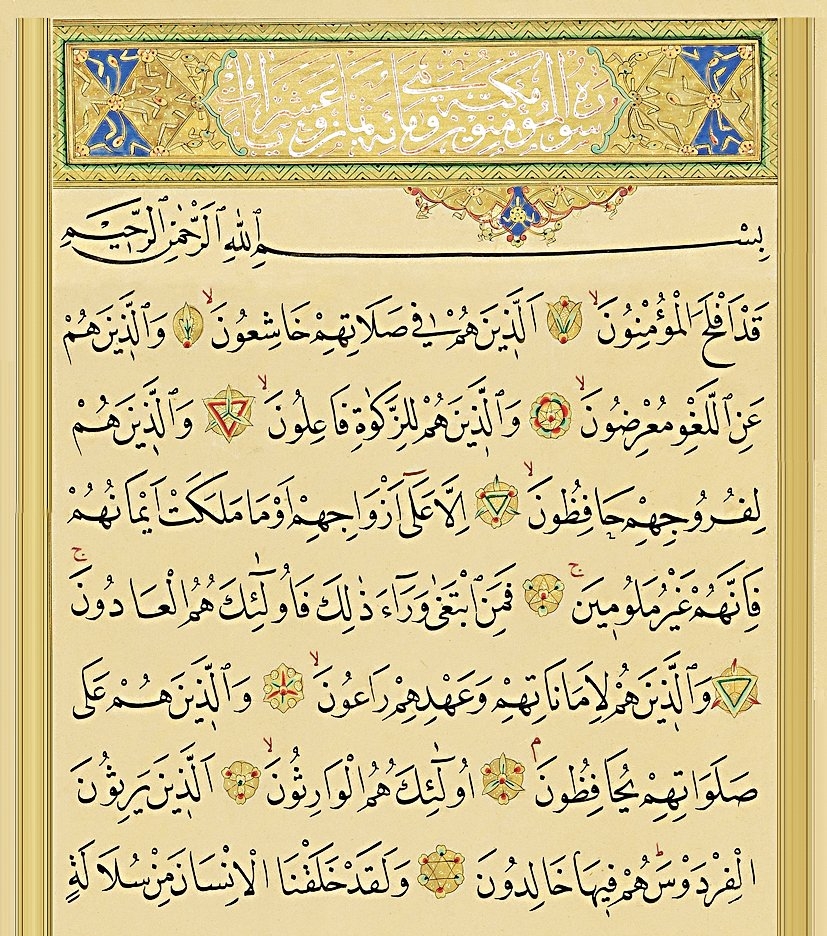 سورة المؤمنون مكية وهي مائة وثمان عشرة آيات
بِسْمِ ٱللّٰهِ ٱلرَّحْمٰنِ ٱلرَّحِيمِ
قَدْ اَفْلَحَ ٱلْمُؤْمِنُونَۙ اَلَّذِينَ هُمْ فِي صَلَاتِهِمْ خَاشِعُونَۙ وَٱلَّذِينَ هُمْ
عَنِ ٱللَّغْوِ مُعْرِضُونَۙ وَٱلَّذِينَ هُمْ لِلزَّكٰوةِ فَاعِلُونَۙ وَٱلَّذِينَ هُمْ
لِفُرُوجِهِمْ حَافِظُونَۙ اِلَّا عَلٰٓى اَزْوَاجِهِمْ اَوْ مَا مَلَكَتْ اَيْمَانُهُمْ
فَاِنَّهُمْ غَيْرُ مَلُومِينَۚ فَمَنِ ٱبْتَغٰى وَرَٓاءَ ذٰلِكَ فَاُو۬لٰٓئِكَ هُمُ الْعَادُونَۚ
وَٱلَّذِينَ هُمْ لِاَمَانَاتِهِمْ وَعَهْدِهِمْ رَاعُونَۙ وَٱلَّذِينَ هُمْ عَلٰى
صَلَوَاتِهِمْ يُحَافِظُونَۘ اُو۬لٰٓئِكَ هُمُ الْوَارِثُونَۙ اَلَّذِينَ يَرِثُونَ
الْفِرْدَوْسَۜ هُمْ فِيهَا خَالِدُونَ وَلَقَدْ خَلَقْنَا الْاِنْسَانَ مِنْ سُلَالَةٍ